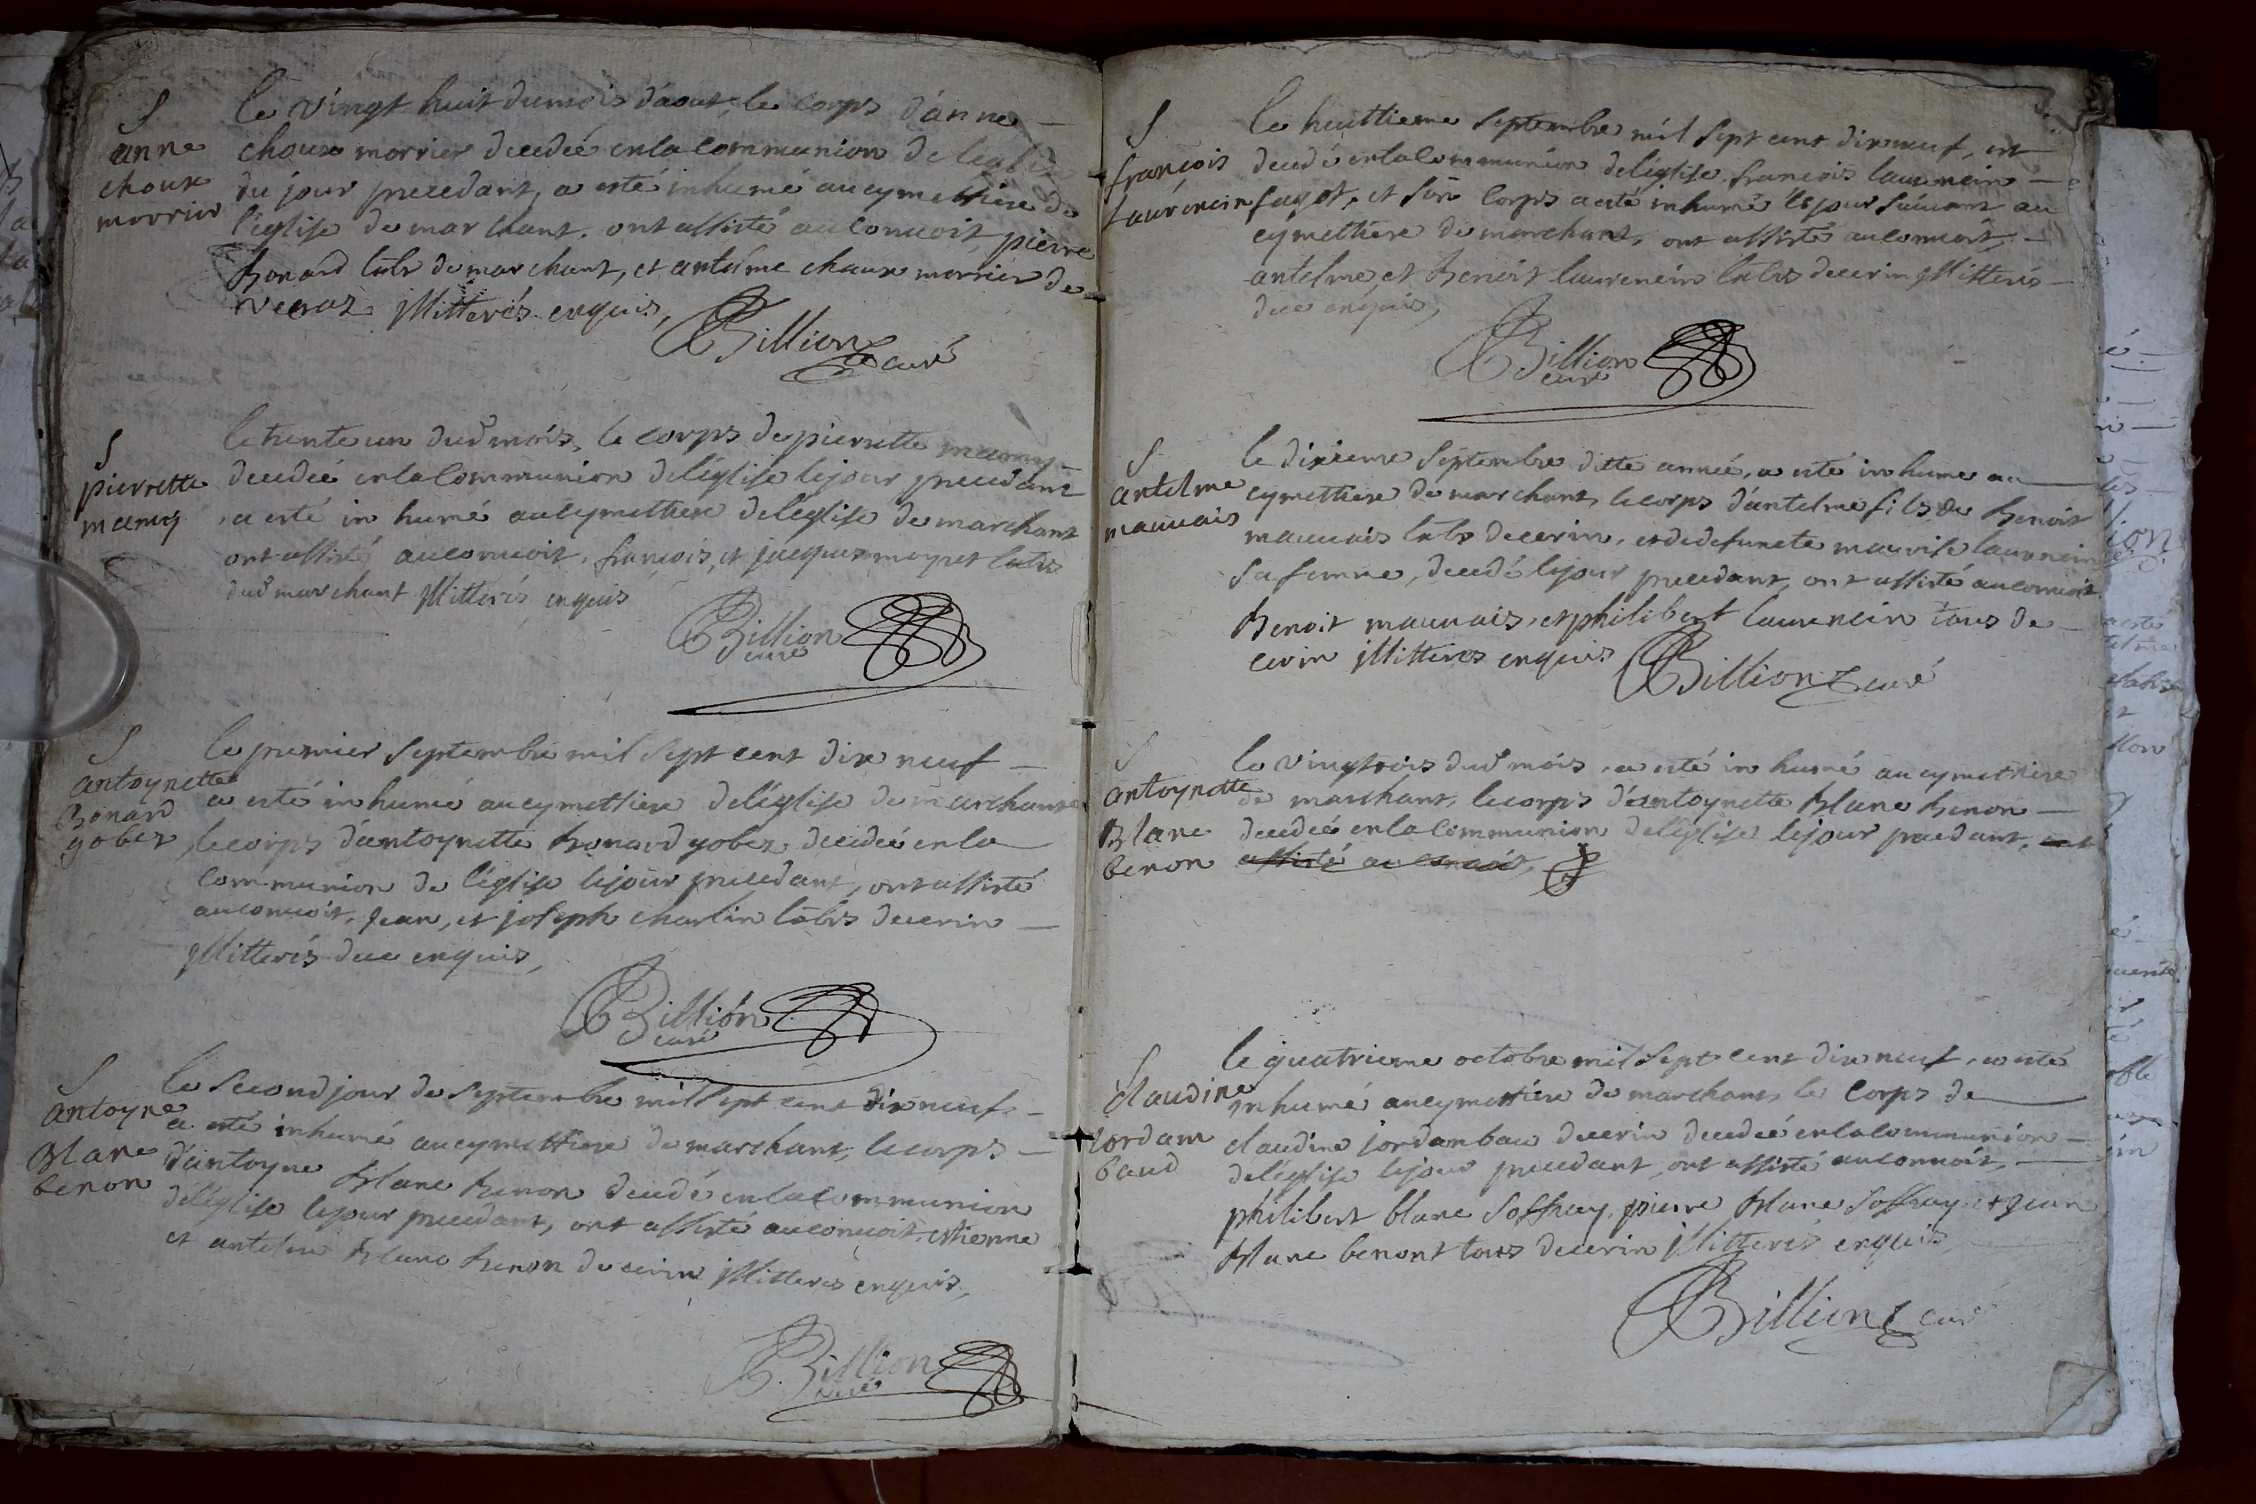 S
anne
choux
morrier
le vingt huit du mois d'aout, le corps d'anne
choux morrier decedée en la communion de
du jour precedant, a esté inhumé au cymettiere de
l'église de marchant, ont assisté au convoit pierre
Bonard de marchant, et antelme chaux morrier de
Illitterés enquis,
Billion curé
S
pierrette
mamy
le trente un dud mois, le corps de pierrette mamy
decedée en la communion de l'église le jour precedant
a esté inhumé au cymettiere de l'eglise de marchant
ont assisté au convoit, françois, et jacques moyret
dud marchant Illitterés enquis
Billion
curé
S
antoynette
Bonard
gobez
le premier septembre mil sept cent dix neuf
a esté inhumé au cymettiere de l'église de marchant
le corps d'antoynette Bonard gobez decedée en la
communion de l'église le jour precedant, ont assisté
au convoit, jean, et joseph charlin de cerin
Illitterés de ce enquis,
Billion
curé
S
antoyne
Blanc
benon
le second jour de septembre mil sept cent dix neuf
a esté inhumé au cymettiere de marchant, le corps
d'antoyne Blanc Benon decedé en la communion
de l'église le jour precedant, ont assisté au convoit, estienne
et antelme Blanc Benon de cerin Illitterés enquis,
Billion
curé
S
françois
Laurencin
le huittieme septembre mil sept cent dix neuf, est
decedé en la communion de l'église françois laurencin
fagot, et son corps a esté inhumé le jour suivant au
cymettiere de marchant, ont assisté au convoit,
antelme, et Benoit laurencin de cerin Illitterés
de ce enquis,
Billion
curé
S
antelme
mauvais
le dixieme septembre ditte année, a esté inhumé au
cymettiere de marchant, le corps d'antelme fils de Benoit
mauvais de cerin, et de defuncte laurencin
sa femme, decedé le jour precedant, ont assisté au convoit
Benoit mauvais, et philibert laurencin tous de
cerin Illitterés enquis
Billion curé
S
antoynette
Blanc
benon
le vingtrois dud mois, a esté inhumé au cymettiere
de marchant, le corps d'antoynette Blanc Benon
decedée en la communion de l'église le jour precedant, ont
assisté au convoit,
S
claudine
Jordam
baud
le quatrieme octobre mil sept cent dix neuf, a esté
inhumé au cymettiere de marchant le corps de
claudine jordan bau de cerin decedée en la communion
de l'église le jour precedant, ont assisté au convoit,
philibert blanc soffray, pierre Blanc soffray et jean
Blanc benont tous de cerin Illitterés enquis
Billion curé